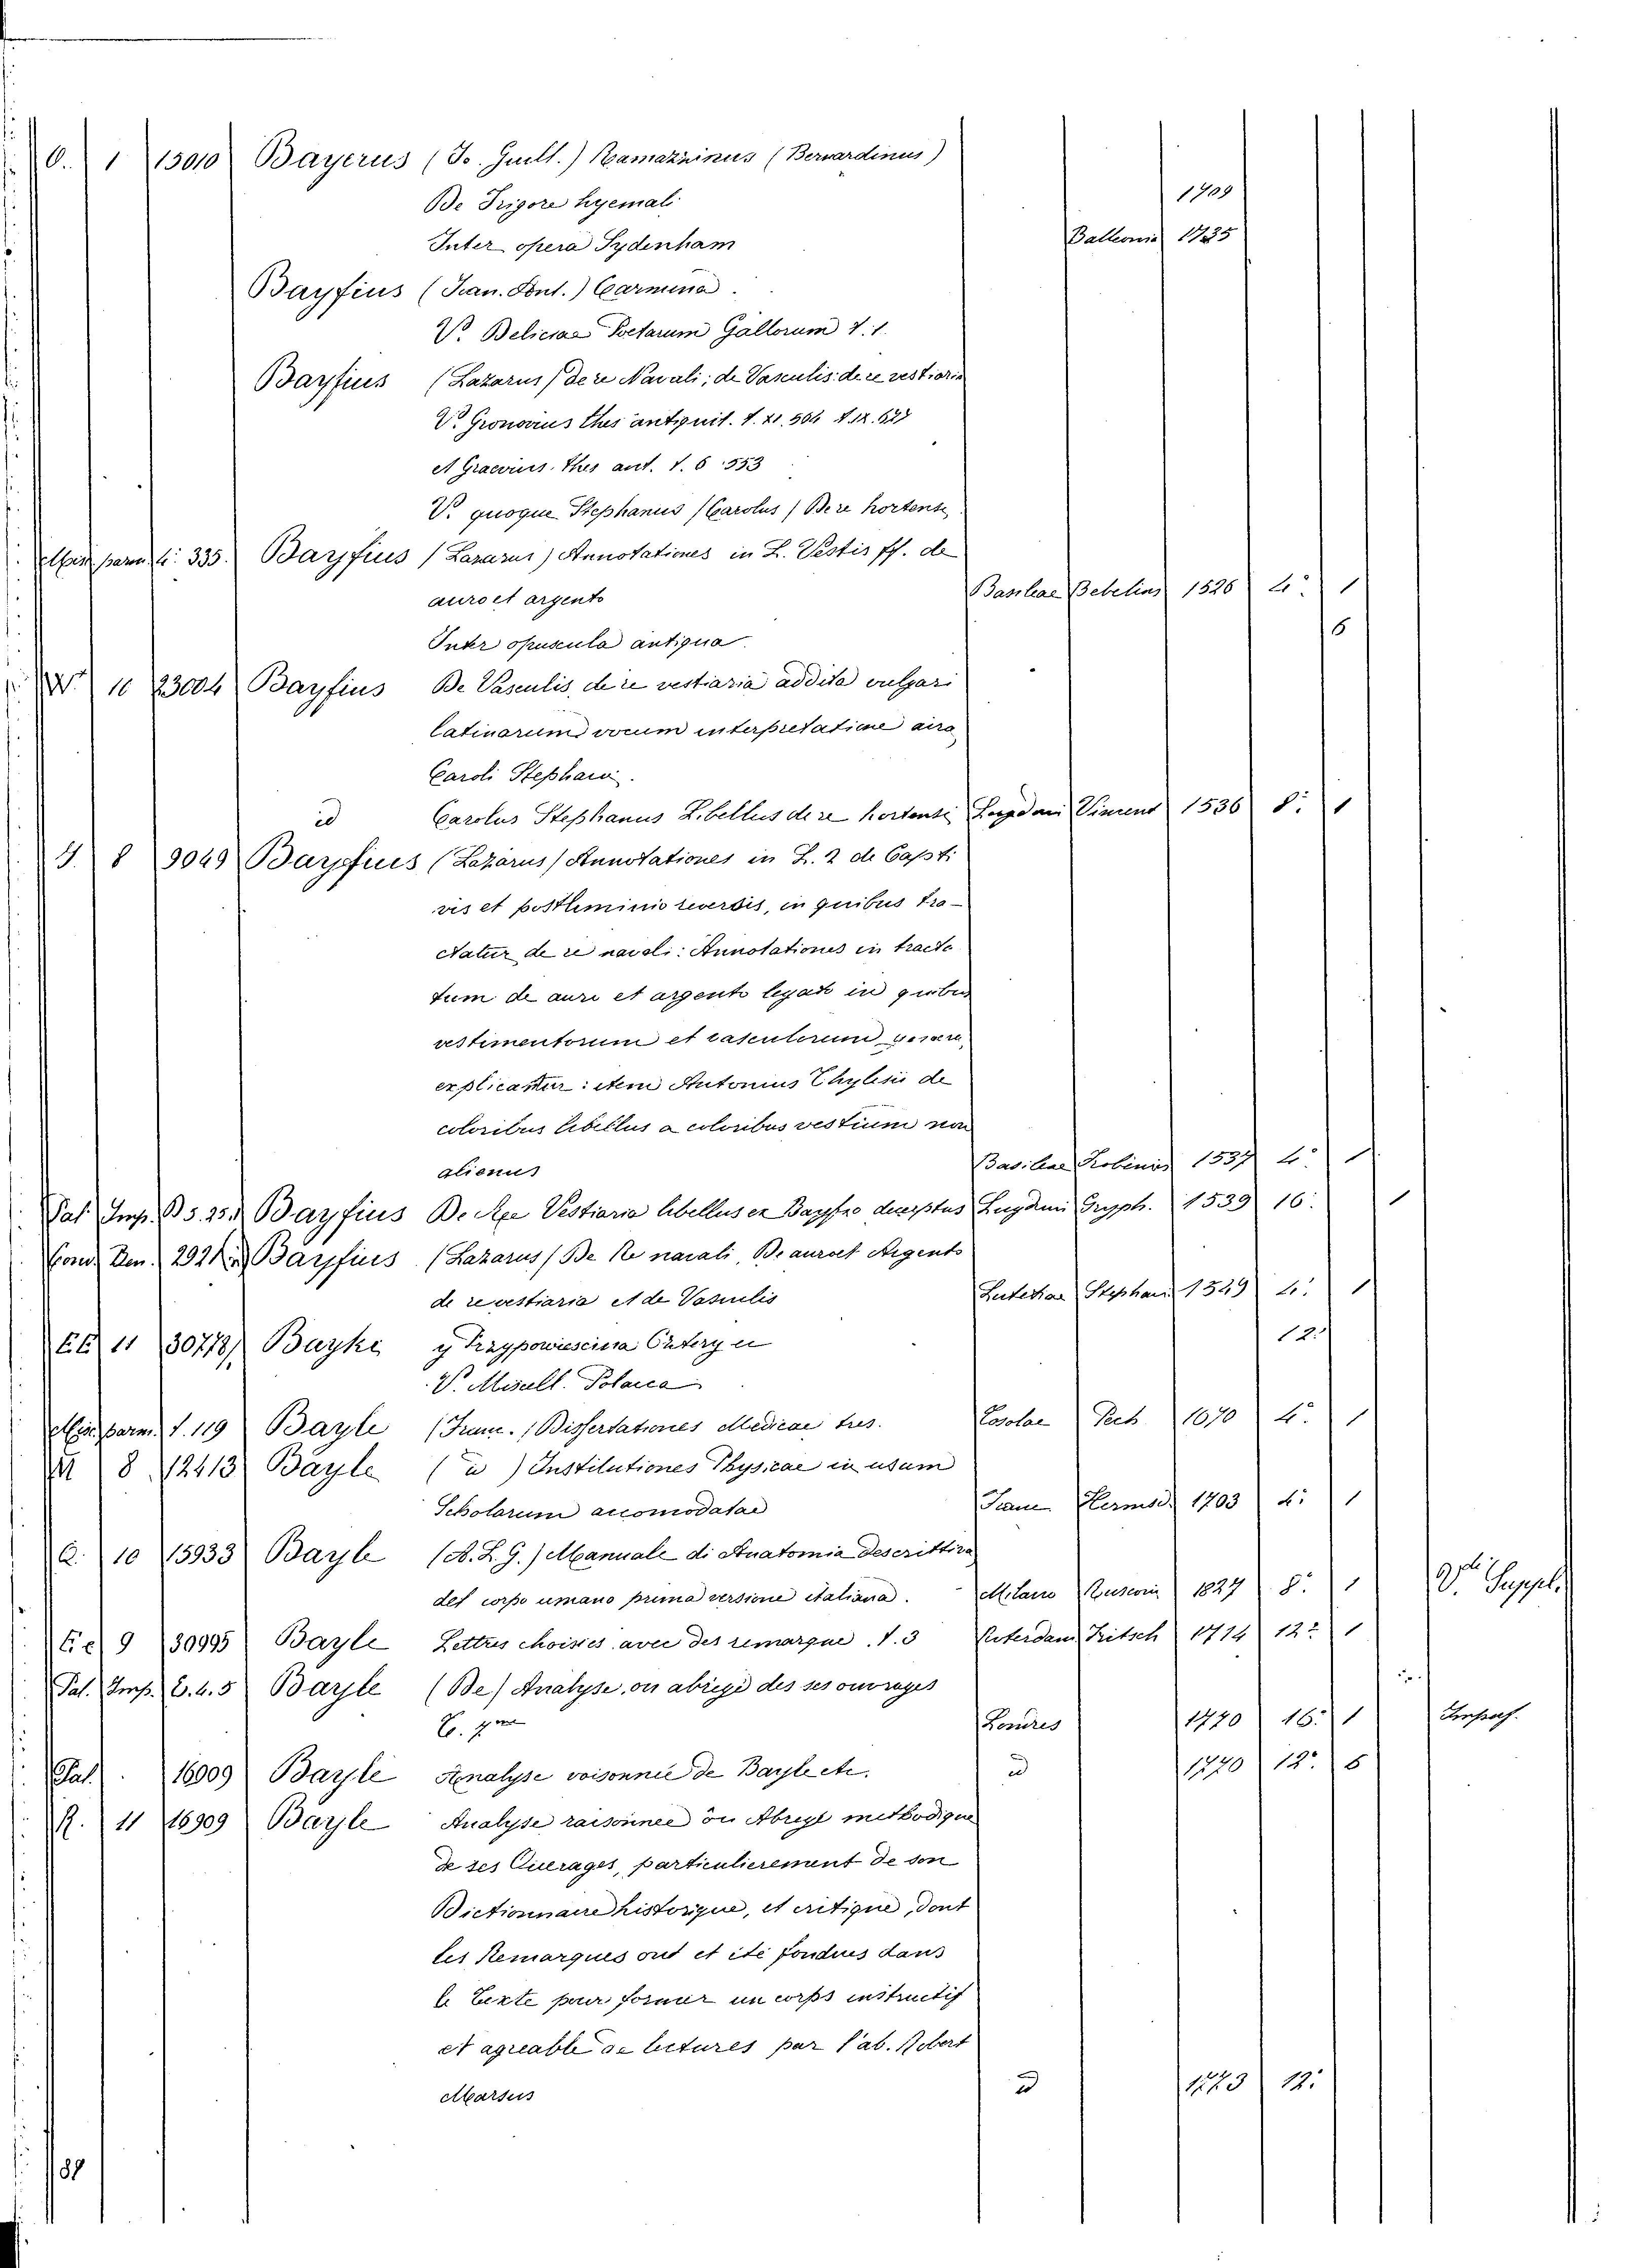 O. 1 15010 Bayerus (Jo. Guill.) Ramazzinus (Bernardinus)
De Frigore hyemali 1709
Inter opera Sydenham 1735
Bayfius (Jean. Ant.) Carmina.
V. Deliciae Poetarum Gallorum t. 1.
Bayfius (Lazarus) de re Navali; de Vasculis: de re vestiaria
V. Gronovius thes antiquit. t. 11. 504 t. 12. 627
et Graevius. thes ant. t. 6. 553
V. quoque Stephanus (Carolus) De re hortense
335. Bayfius (Lazarus) Annotationes in L. Vestis ff. de
auro et argento Basileae Bebelius 1526 4: 1
Inter opuscula antiqua. 6
W 10 23004 Bayfius De Vasculis, de re vestiaria addita vulgari
latinarum vocum interpretatione cura
Caroli Stephani.
id Carolus Stephanus Libellus de re hortensi Lugduni Vincent 1536 8: 1
J. 8 9049 Bayfius (Lazarus) Annotationes in L. 2 de Capti
vis et postliminio reversis, in quibus tra-
ctatur de re navali: Annotationes in tracta
tum de auro et argento legato in quibus
vestimentorum et vasculorum genera
explicantur: item Antonius Thylesii de
coloribus libellus a coloribus vestium non
alienus Basileae Frobenius 1537 4: 1
Pal. Imp. B 5. 25. Bayfius De Re Vestiaria libellus ex Bayfio decerptus Lugduni Gryph. 1539 16: 1
Cond. Den. 292 Bayfius (Lazarus) De Re navali, De auro et Argento
de re vestiaria et de Vasculis Lutetiae Stephan 1549 4: 1
EE 11 30778 Bayki y Przypowiescina Cztery 12:
V. Miscell. Polacca
t. 119 Bayle (Franc.) Dissertationes Medicae tres. Tosolae Pech 1670 4: 1
M 8 12413 Bayle (id) Institutiones Physicae in usum
Scholarum accomodatae 1703 4: 1
Q. 10 15933 Bayle (A. L. G.) Manuale di Anatomia descrittiva
del corpo umano prima versione italiana. Milano Rusconi 1827 8: 1 V. Suppl.
Ee 9 30995 Bayle Lettres choisies avec des remarque. t. 3 Roterdam Fritsch 1714 12: 1
Pal. Imp. C. 4. 5 Bayle (De) Analyse, ou abregé des ses ouvrages
Londres 1770 16: 1
Pal. 16909 Bayle Analyse raisonnée de Bayle etc. id 1770 12: 6
R. 11 16909 Bayle Analyse raisonnée ou Abregé methodique
de ses Ouvrages, particulierement de son
Dictionnaire historique, et critique, dont
les Remarques ont et été fondues dans
le Texte pour former un corps instructif
et agreable de lectures par l'ab. Robert
Marsus id 1773 12:
188